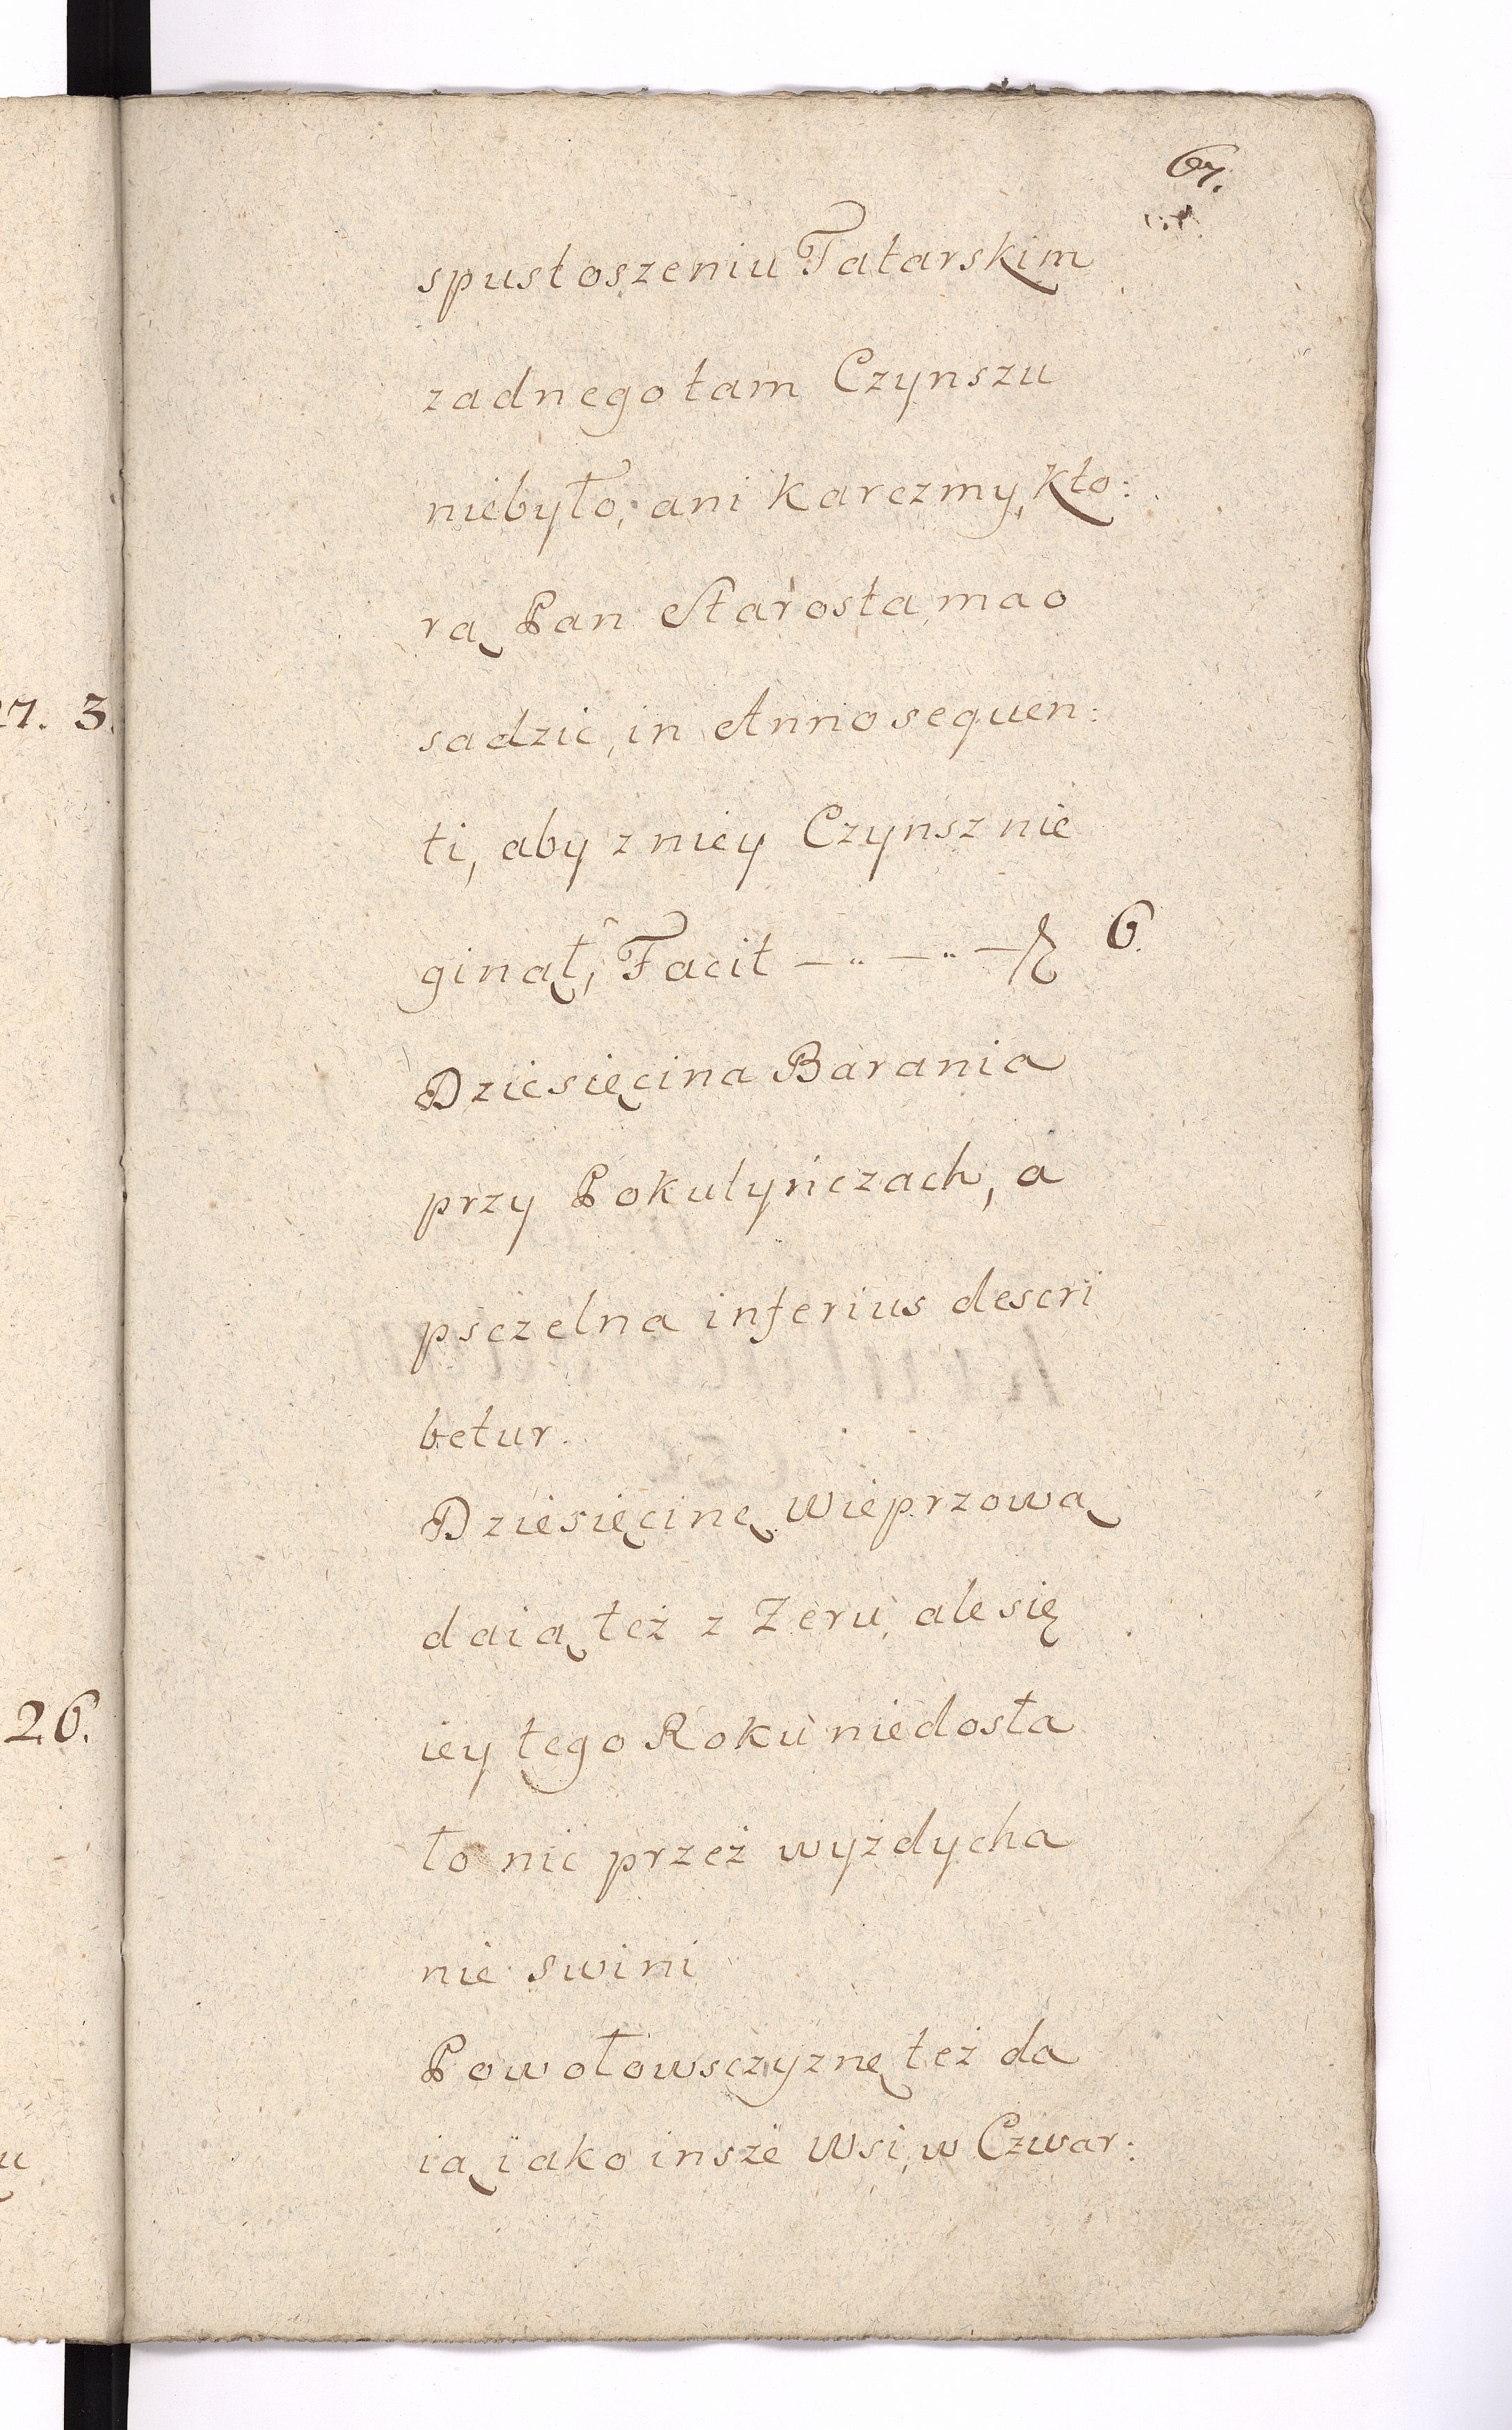 67.
spustoszeniu Tatarskim
zadnego tam Czynszu
niebyło, ani karczmy, kto:
rą Pan Starosta ma o
sadzic, in Anno sequen:
ti, aby z niey Czynsz nie
27. 3.
ginął, Facit —..—..— fl 6.
Dziesięcina Barania
przy Pokutyńczach, a
psczelna inferius descri
betur.
Dziesięcinę wieprzową
daią też z Zeru, ale się
iey tego Roku niedosta
26.
ło nic przez wyzdycha
nie swini
Powołowsczyznę też da
ią iako insze Wsi, w Czwar: